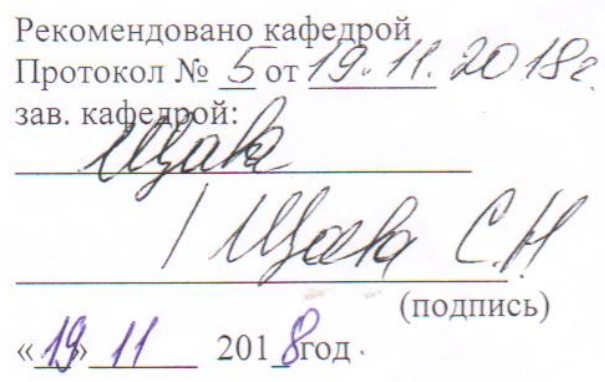 Рекомендовано кафедрой
Протокол № 5 от 19.11.2018г.
зав. кафедрой:
Щава
/ Щава С.Н
(подпись)
«19» 11 2018год.